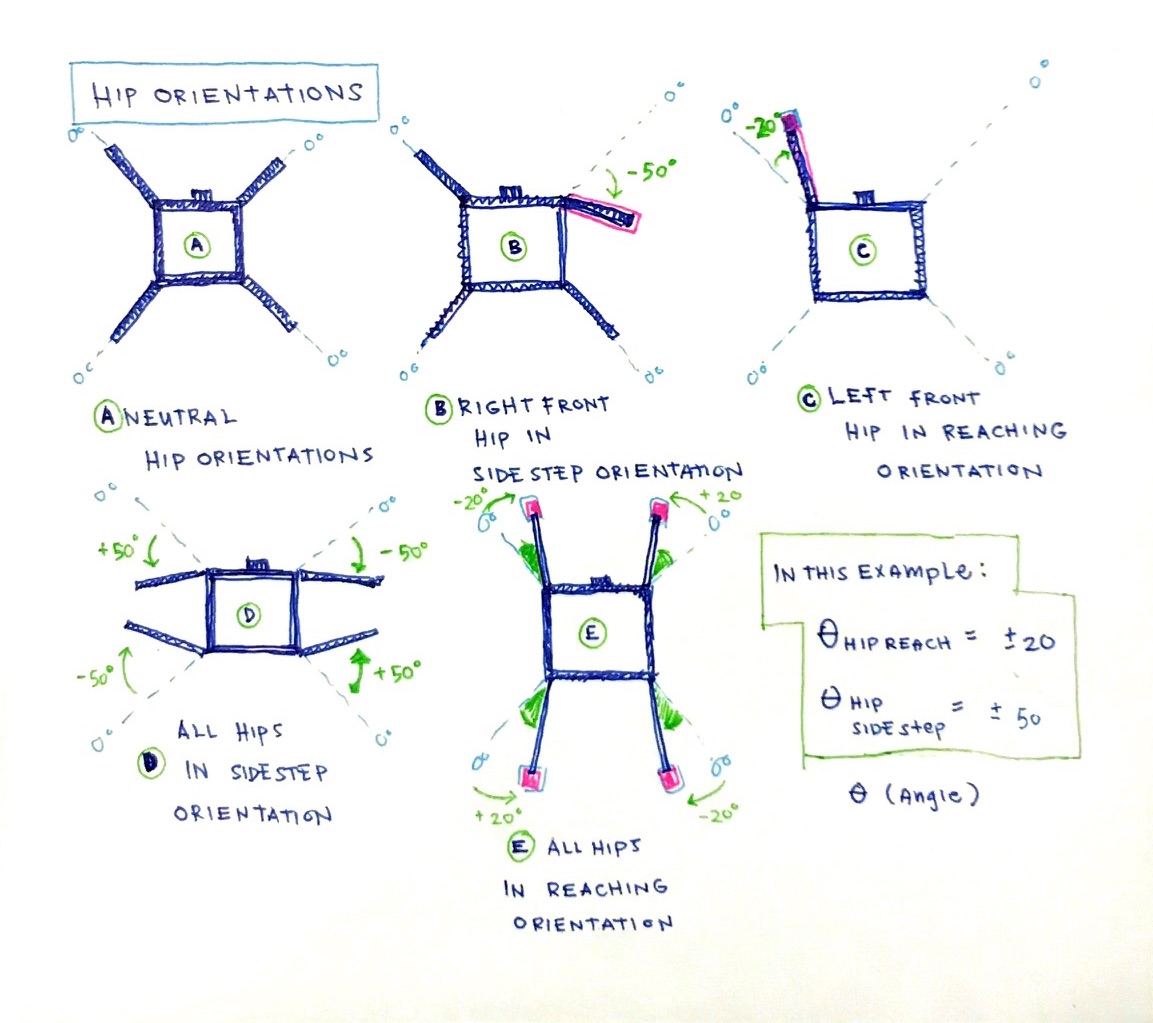 HIP ORIENTATIONS
0°
0°
A
0°
0°
A NEUTRAL
HIP ORIENTATIONS
0°
0°
-50°
B
0°
0°
B RIGHT FRONT
HIP IN
SIDE STEP ORIENTATION
0°
0°
-20°
C
0°
0°
C LEFT FRONT
HIP IN REACHING
ORIENTATION
0°
0°
+50°
-50°
D
-50°
+50°
0°
0°
ALL HIPS
D IN SIDESTEP
ORIENTATION
-20°
+20
0°
0°
E
0°
0°
+20°
-20°
E ALL HIPS
IN REACHING
ORIENTATION
IN THIS EXAMPLE:
θ HIP REACH = ±20
θ HIP SIDE STEP = ±50
θ (Angle)